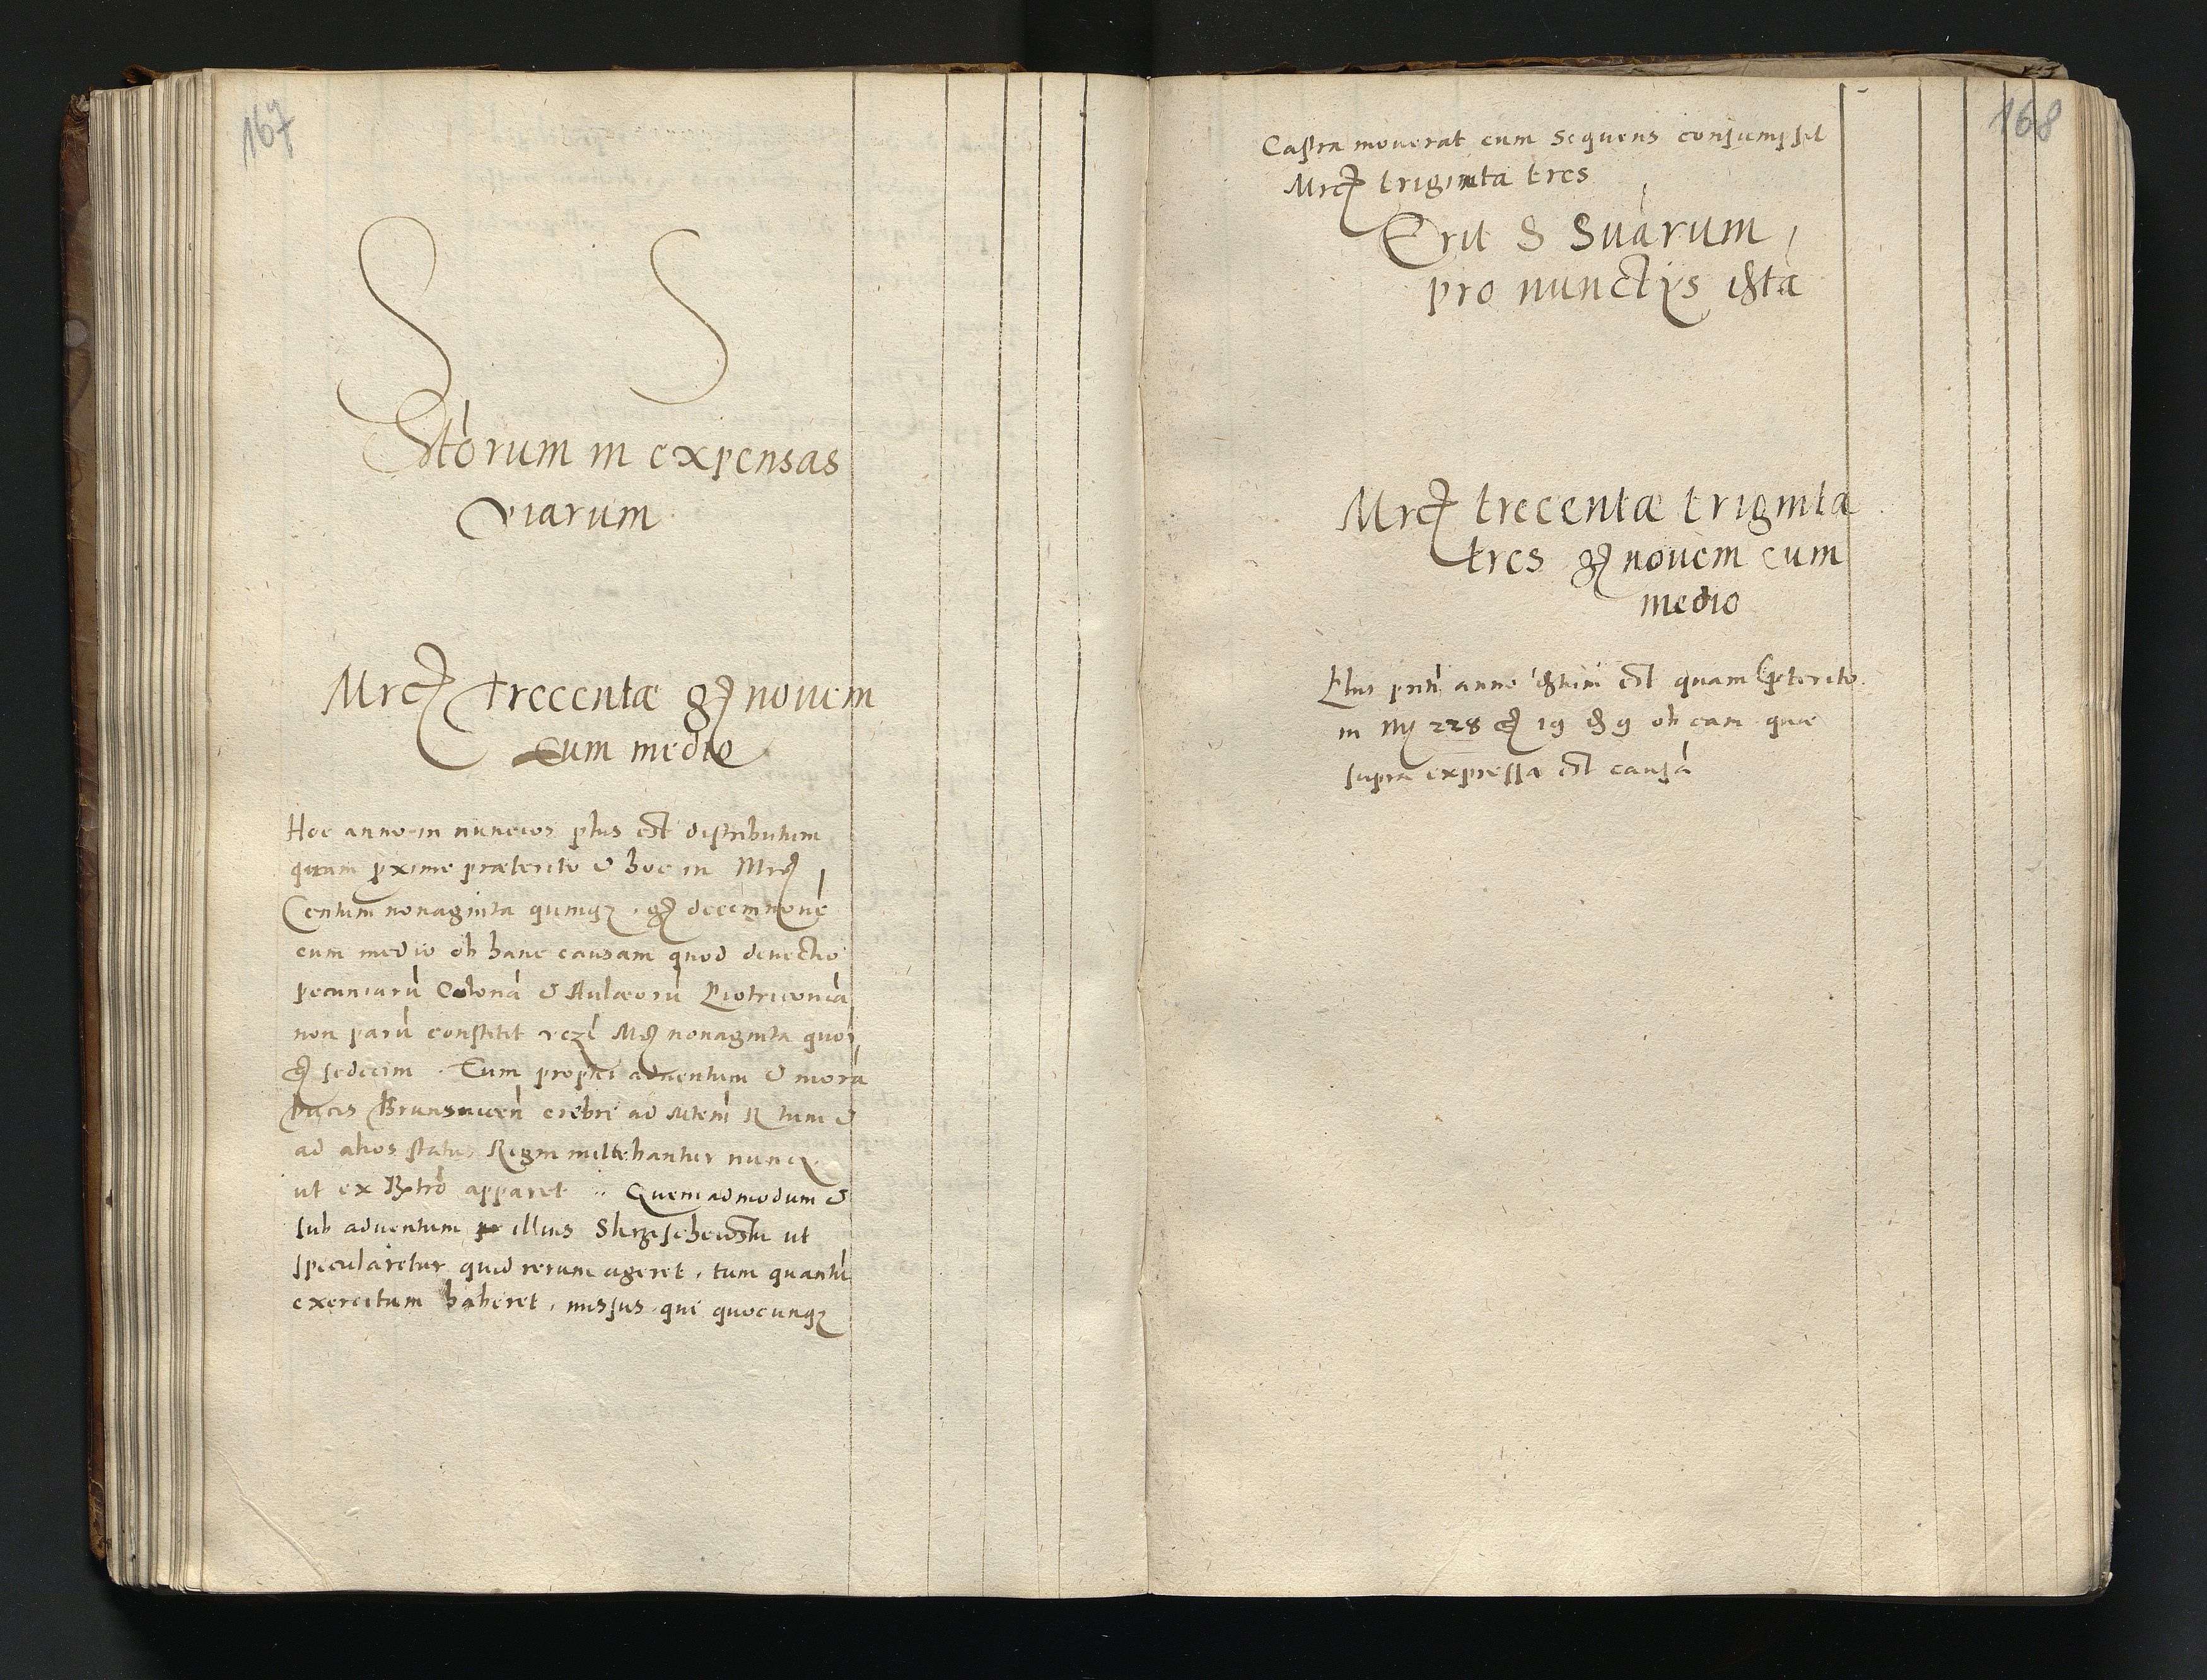 167
S S
Dtorum in expensas
viarum
Mrc trecentæ g novem
cum medio
Hoc anno in nuncios plus est distributum
quam pxime præterito & hoc in Mrc
Centum nonaginta quinqz g decemnove
cum medio ob hanc causam quod devectio
pecuniarū Coloná & Aulæorū Piotricoviā
non parū constitit Mrc nonaginta
g sedecim. Tum adventum & morā
Ducis Brunsvicen crebri ad Mtem R tum &
ad alios status Regni mittebantur nunc
ut ex Rtro apparet. Quemadmodum &
sub adventum illius ut
specularetur quid rerum ageret, tum quantū
exercitum haberet, missus qui quocunqz
168
Castra moverat eum sequens consumpsit
Mrc triginta tres
Erit S Suarum
pro nunctijs ista
Mrc trecentæ triginta
tres g novem cum
medio
Plus pnti anno est quam pterito
in Mrc 228 g 19 9 ob eam quæ
supra expressa est causā